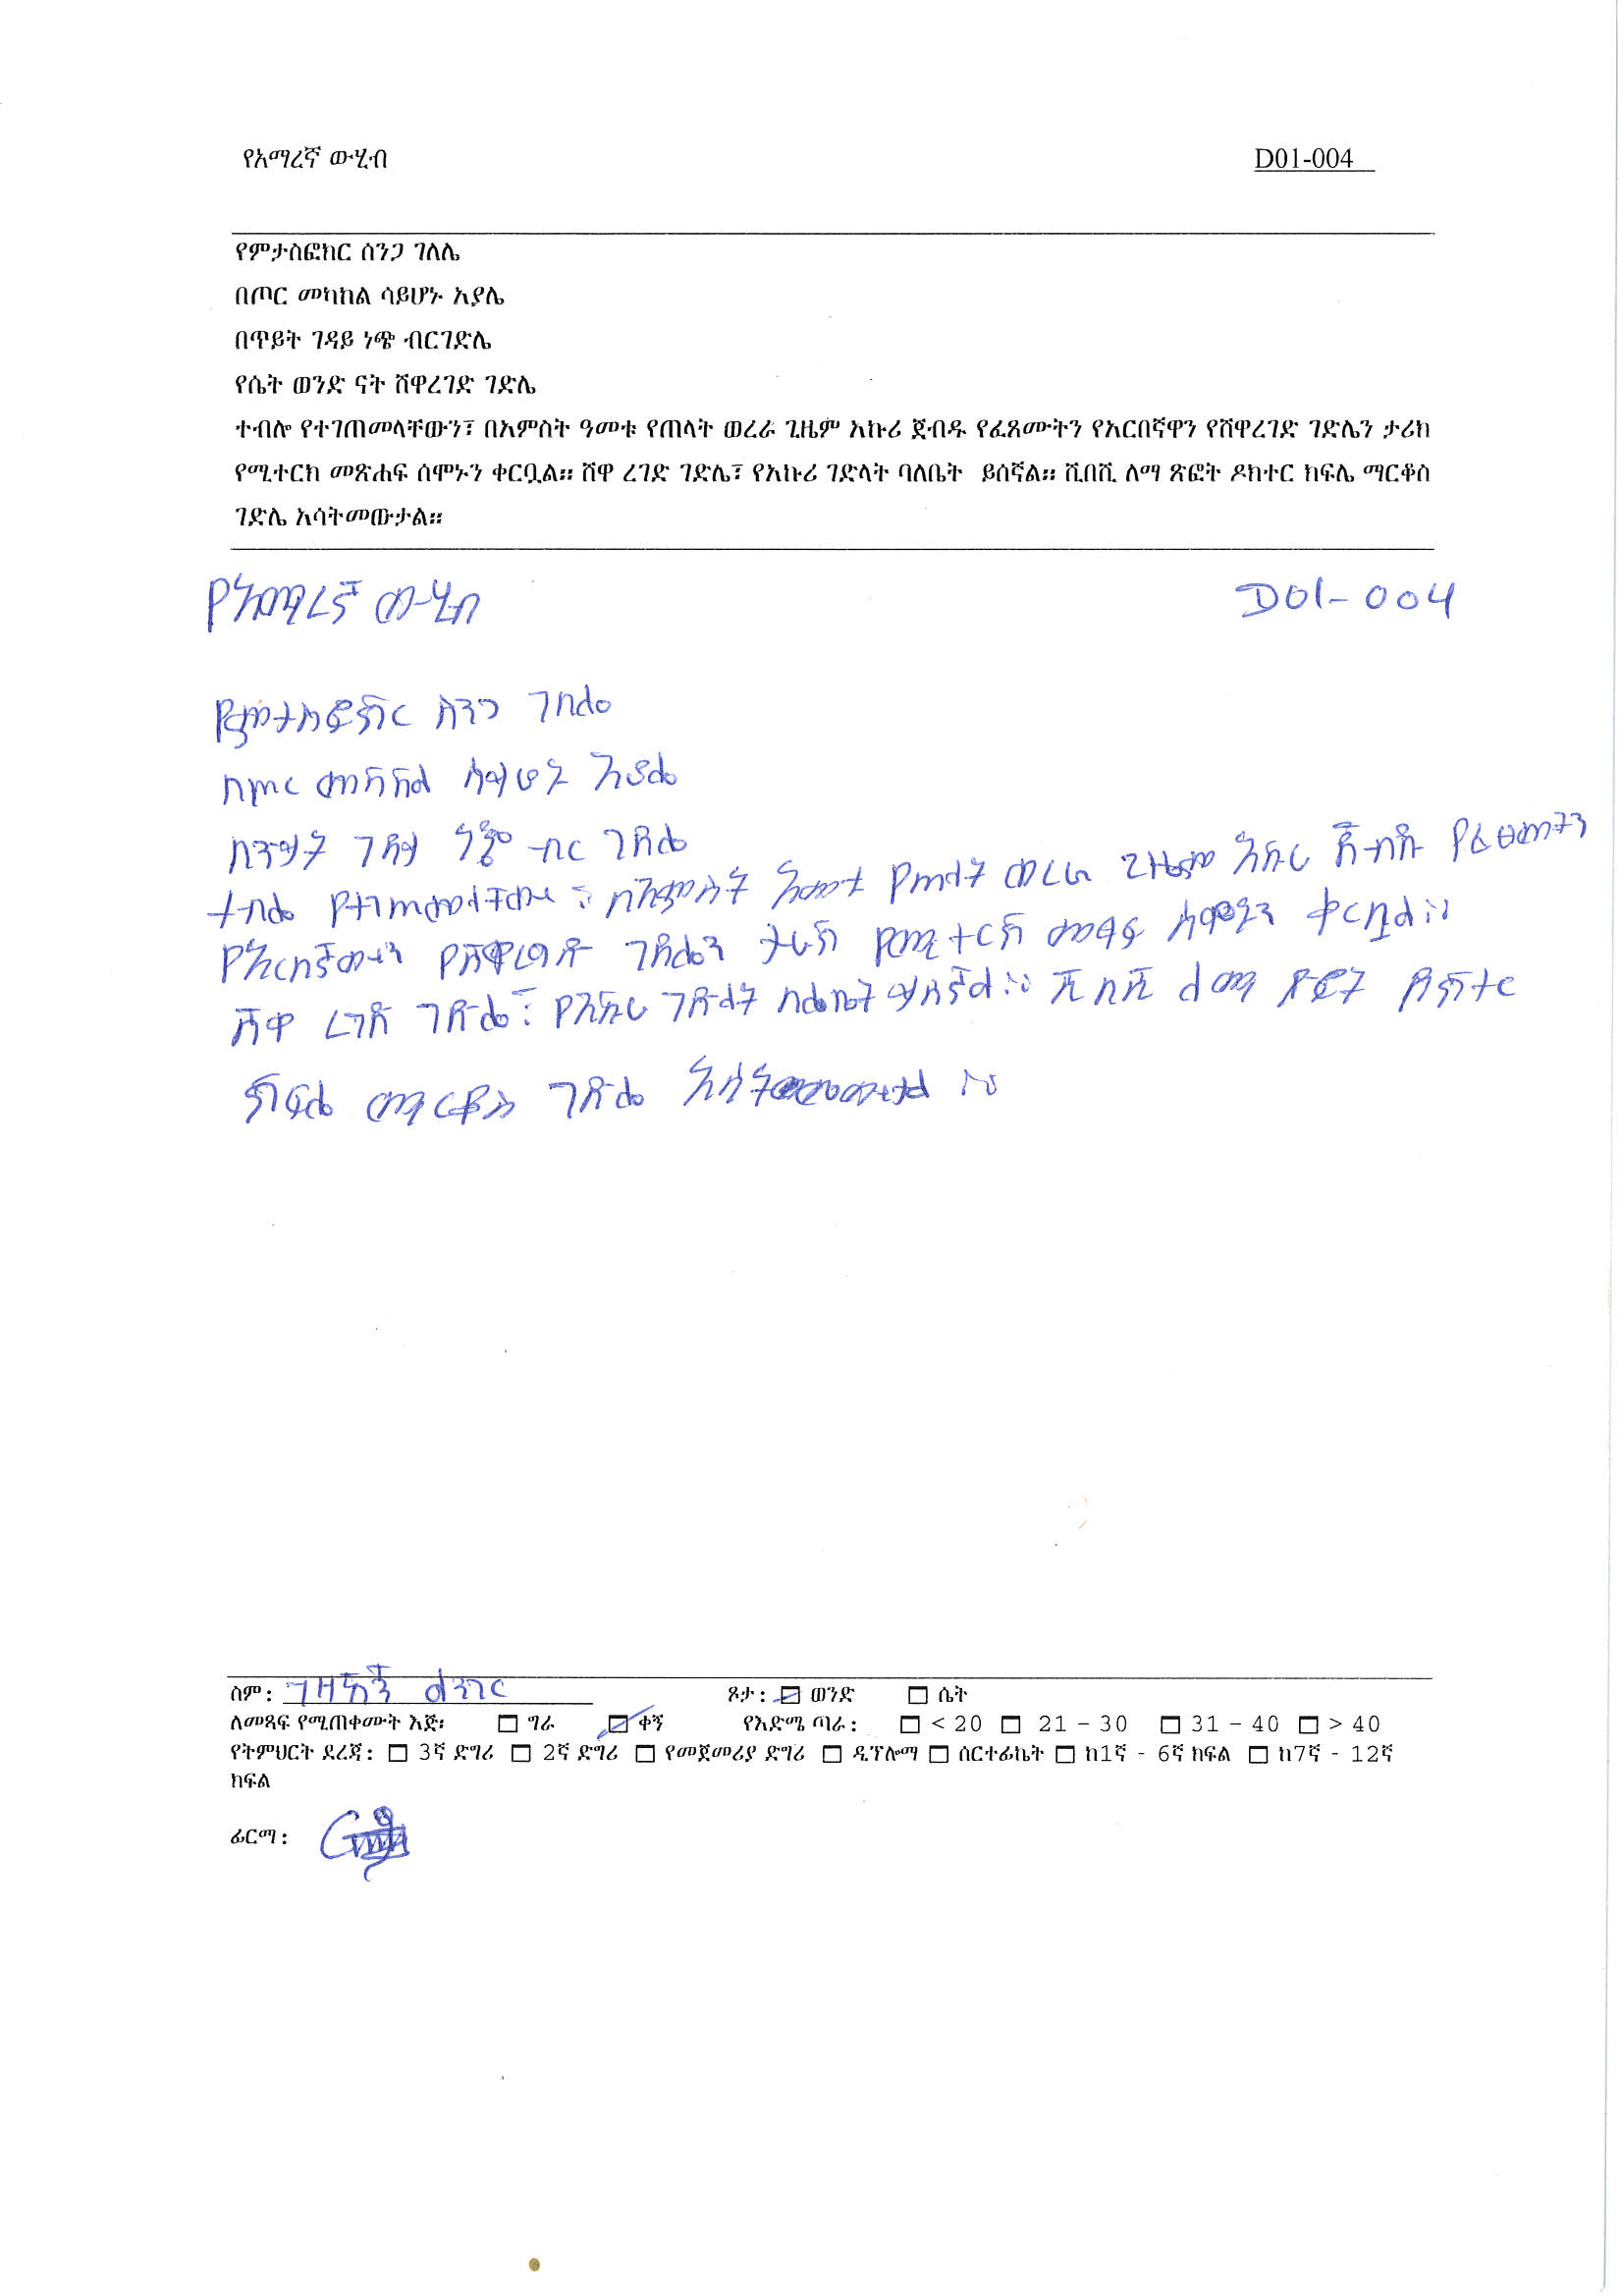 የአማረኛ ውሂብ D01-004
የምታስፎክር ሰንጋ ገለሌ
በጦር መካከል ሳይሆኑ አያሌ
በጥይት ገዳይ ነጭ ብርገድሌ
የሴት ወንድ ናት ሸዋረገድ ገድሌ
ተብሎ የተገጠመላቸውን፣ በአምስት ዓመቱ የጠላት ወረራ ጊዜም አኩሪ ጀብዱ የፈጸሙትን የአርበኛዋን የሸዋረገድ ገድሌን ታሪክ
የሚተርክ መጽሐፍ ሰሞኑን ቀርቧል። ሸዋ ረገድ ገድሌ፣ የአኩሪ ገድላት ባለቤት ይሰኛል። ሺበሺ ለማ ጽፎት ዶክተር ክፍሌ ማርቆስ
ገድሌ አሳትመውታል።
የአማረኛ ውሂብ D01-004
የምታስፎክር ሰንጋ ገለሌ
በጦር መካከል ሳይሆኑ አያሌ
በጥይት ገዳይ ነጭ ብር ገድሌ
ተብሎ የተገጠመላቸውን ፣ በአምስት አመቱ የጠላት ወረራ ጊዜም አኩሪ ጀብዱ የፈፀሙትን
የአርበኛዋን የሸዋረገድ ገድሌን ታሪክ የሚተርክ መፃፍ ሰሞኑን ቀርቧል።
ሸዋ ረገድ ገድሌ፣ የአኩሪ ገድላት ባለቤት ይሰኛል። ሺበሺ ለማ ጽፎት ዶክተር
ክፍሌ ማርቆስ ገድሌ ።
ስም: ጾታ: ወንድ ሴት
ለመጻፍ የሚጠቀሙት እጅ፡ ግራ ቀኝ የእድሜ ጣራ: < 20 21 – 30 31 – 40 > 40
የትምህርት ደረጃ: 3ኛ ድግሪ 2ኛ ድግሪ የመጀመሪያ ድግሪ ዲፕሎማ ሰርተፊኬት ከ1ኛ - 6ኛ ክፍል ከ7ኛ - 12ኛ
ክፍል
ፊርማ: